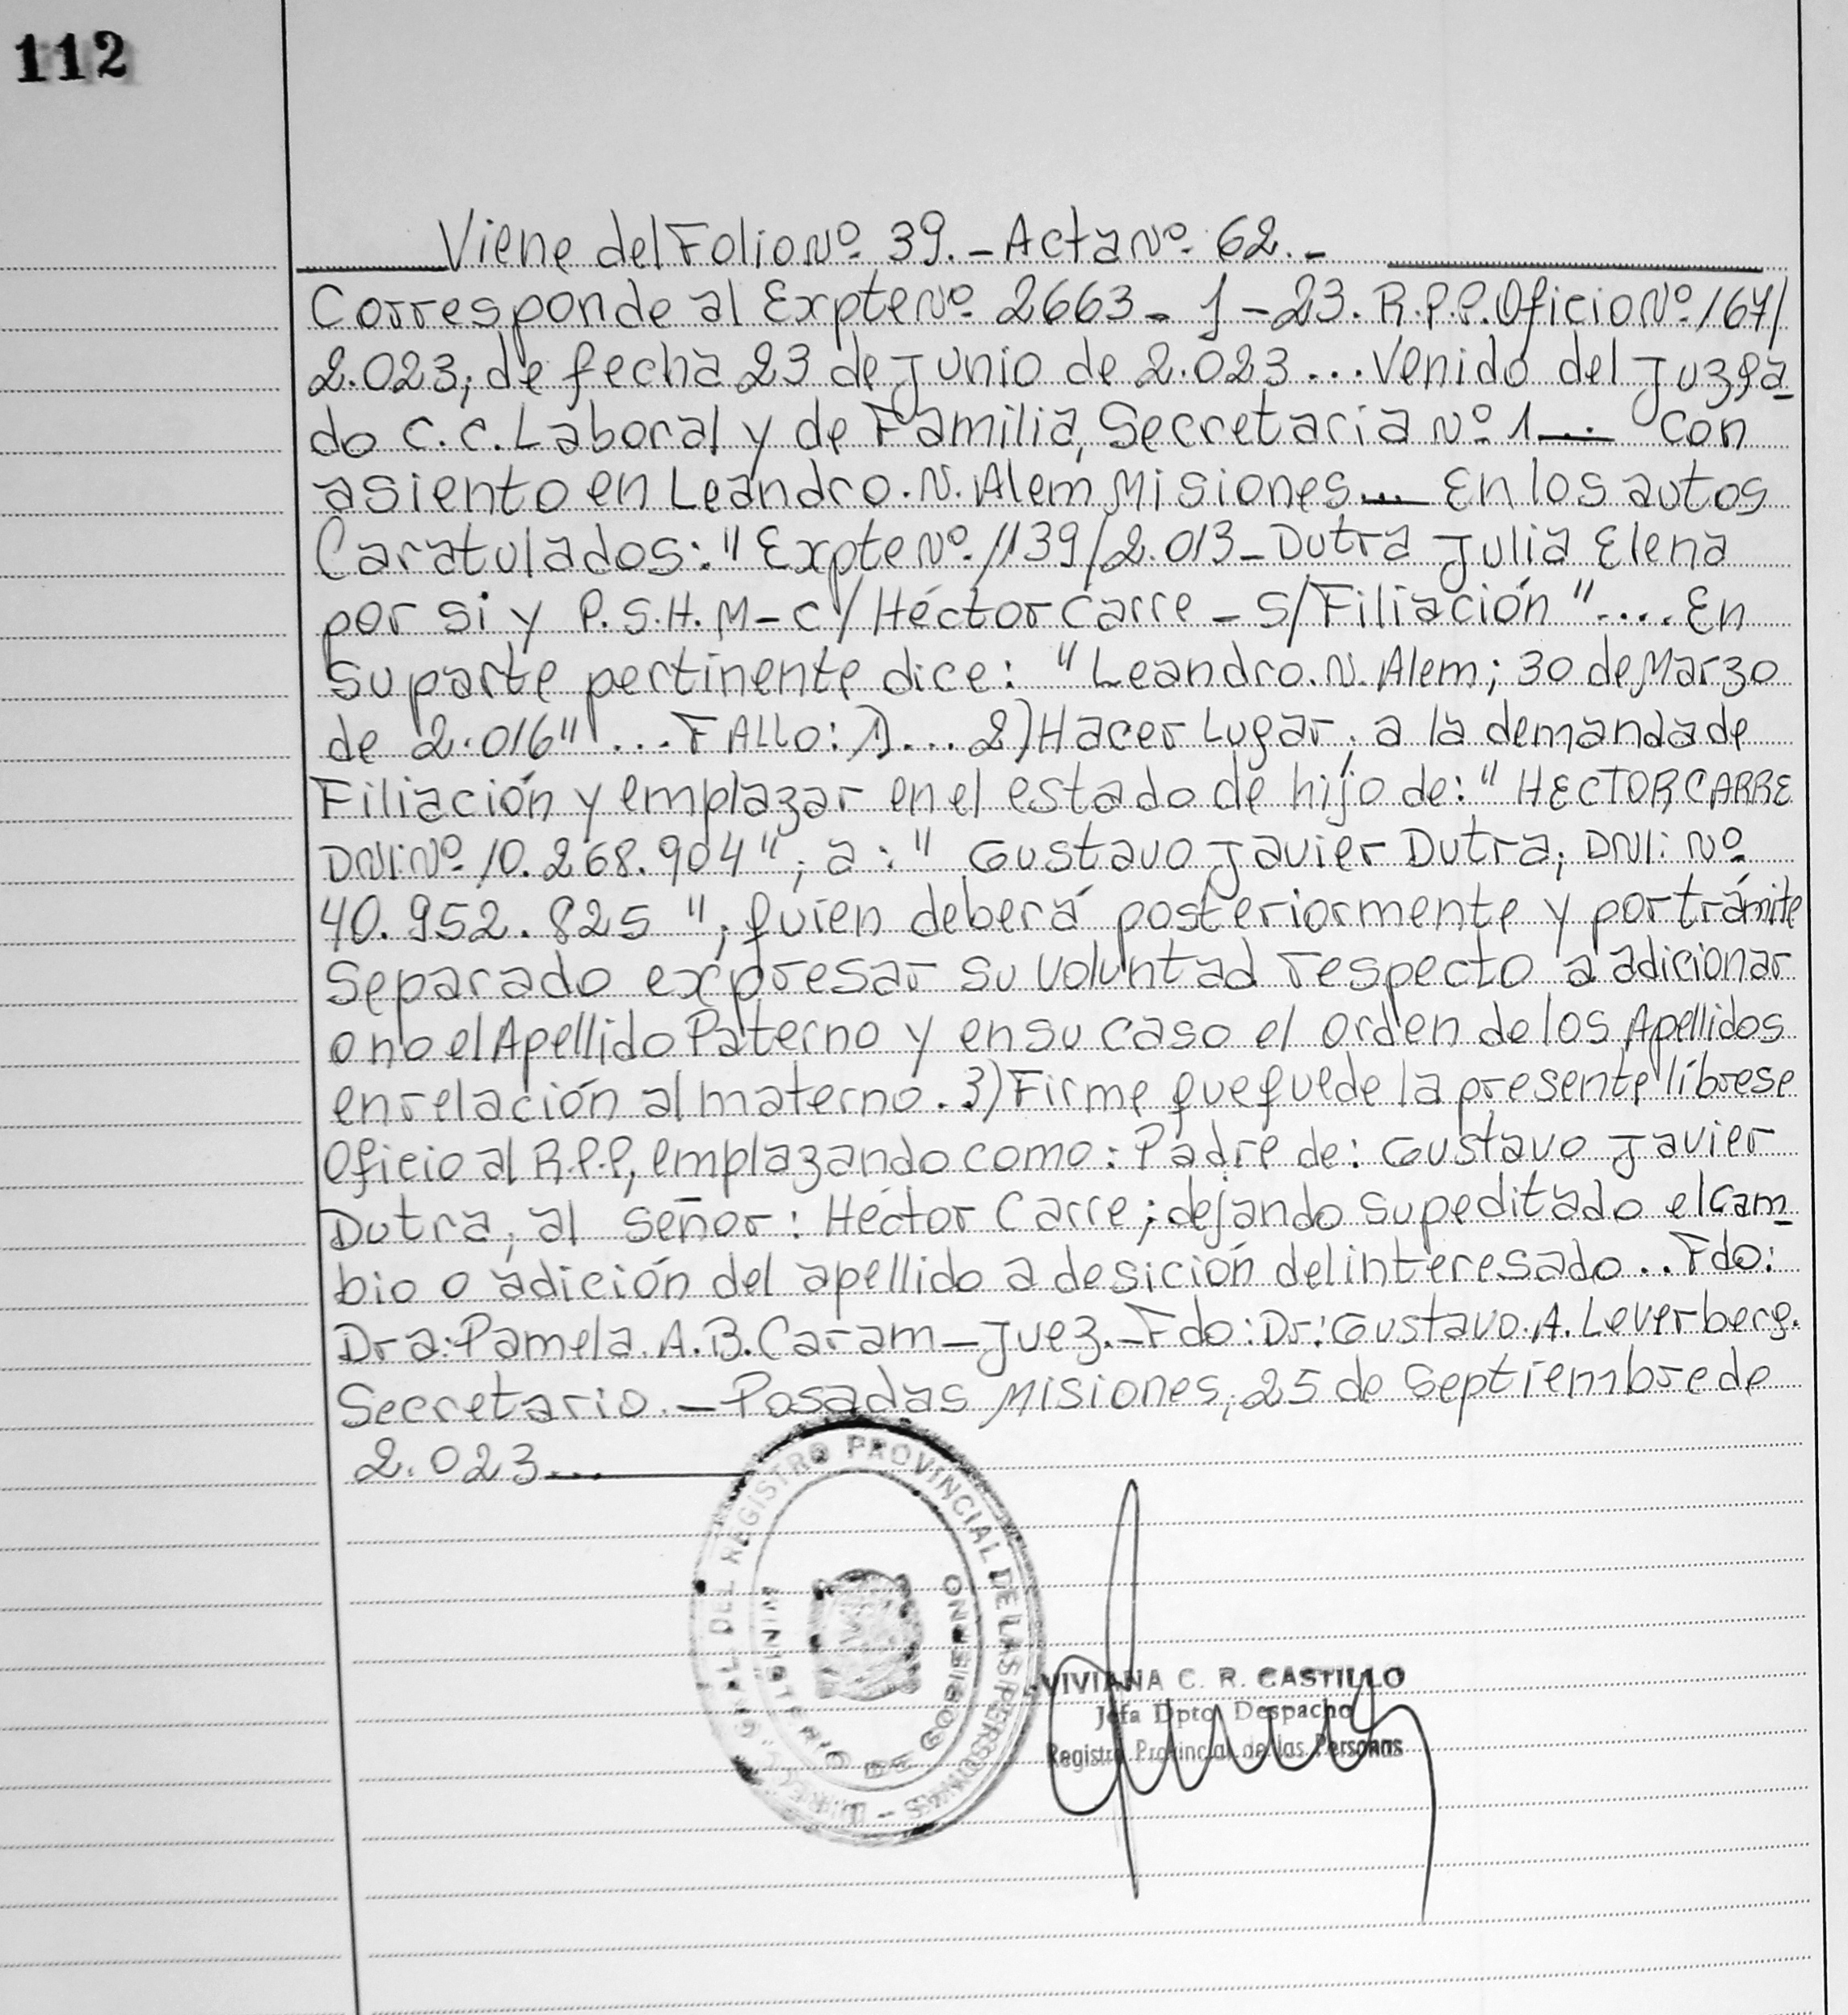 112
Viene del Folio Nº 39.- Acta Nº 62.-
Corresponde al Expte Nº 2663 - J - 23. R.P.P. Oficio Nº 167/
2.023, de fecha 23 de Junio de 2.023... Venido del Juzga
do C.C. Laboral y de Familia, Secretaria Nº 1... Con
asiento en Leandro. N. Alem Misiones... En los autos
Caratulados: "Expte Nº 1139/2.013 - Dutra Julia Elena
por si y P.S.H.M - C/ Héctor Carre - S/Filiación".... En
su parte pertinente dice: "Leandro. N. Alem; 30 de Marzo
de 2.016" ... FALLO: 1)... 2) Hacer Lugar, a la demanda de
Filiación y emplazar en el estado de hijo de: "HECTOR CARRE
DNI: Nº 10.268.904", a: " Gustavo Javier Dutra, DNI: Nº
40.952.825 ", quien deberá posteriormente y por trámite
Separado expresar su voluntad respecto a adicionar
o no el Apellido Paterno y en su caso el orden de los Apellidos
en relación al materno. 3) Firme que quede la presente líbrese
Oficio al R.P.P, emplazando como: Padre de: Gustavo Javier
Dutra, al señor: Héctor Carre; dejando supeditado el Cam
bio o adición del apellido a desición del interesado.. Fdo:
Dra: Pamela. A. B. Caram - Juez. - Fdo: Dr: Gustavo. A. Leverberg.
Secretario. - Posadas Misiones, 25 de Septiembre de
2.023...
DEL REGISTRO PROVINCIAL DE LAS PERSONAS
MINISTERIO DE GOBIERNO
VIVIANA C. R. CASTILLO
Jefa Dpto. Despacho
Registro Provincial de las Personas